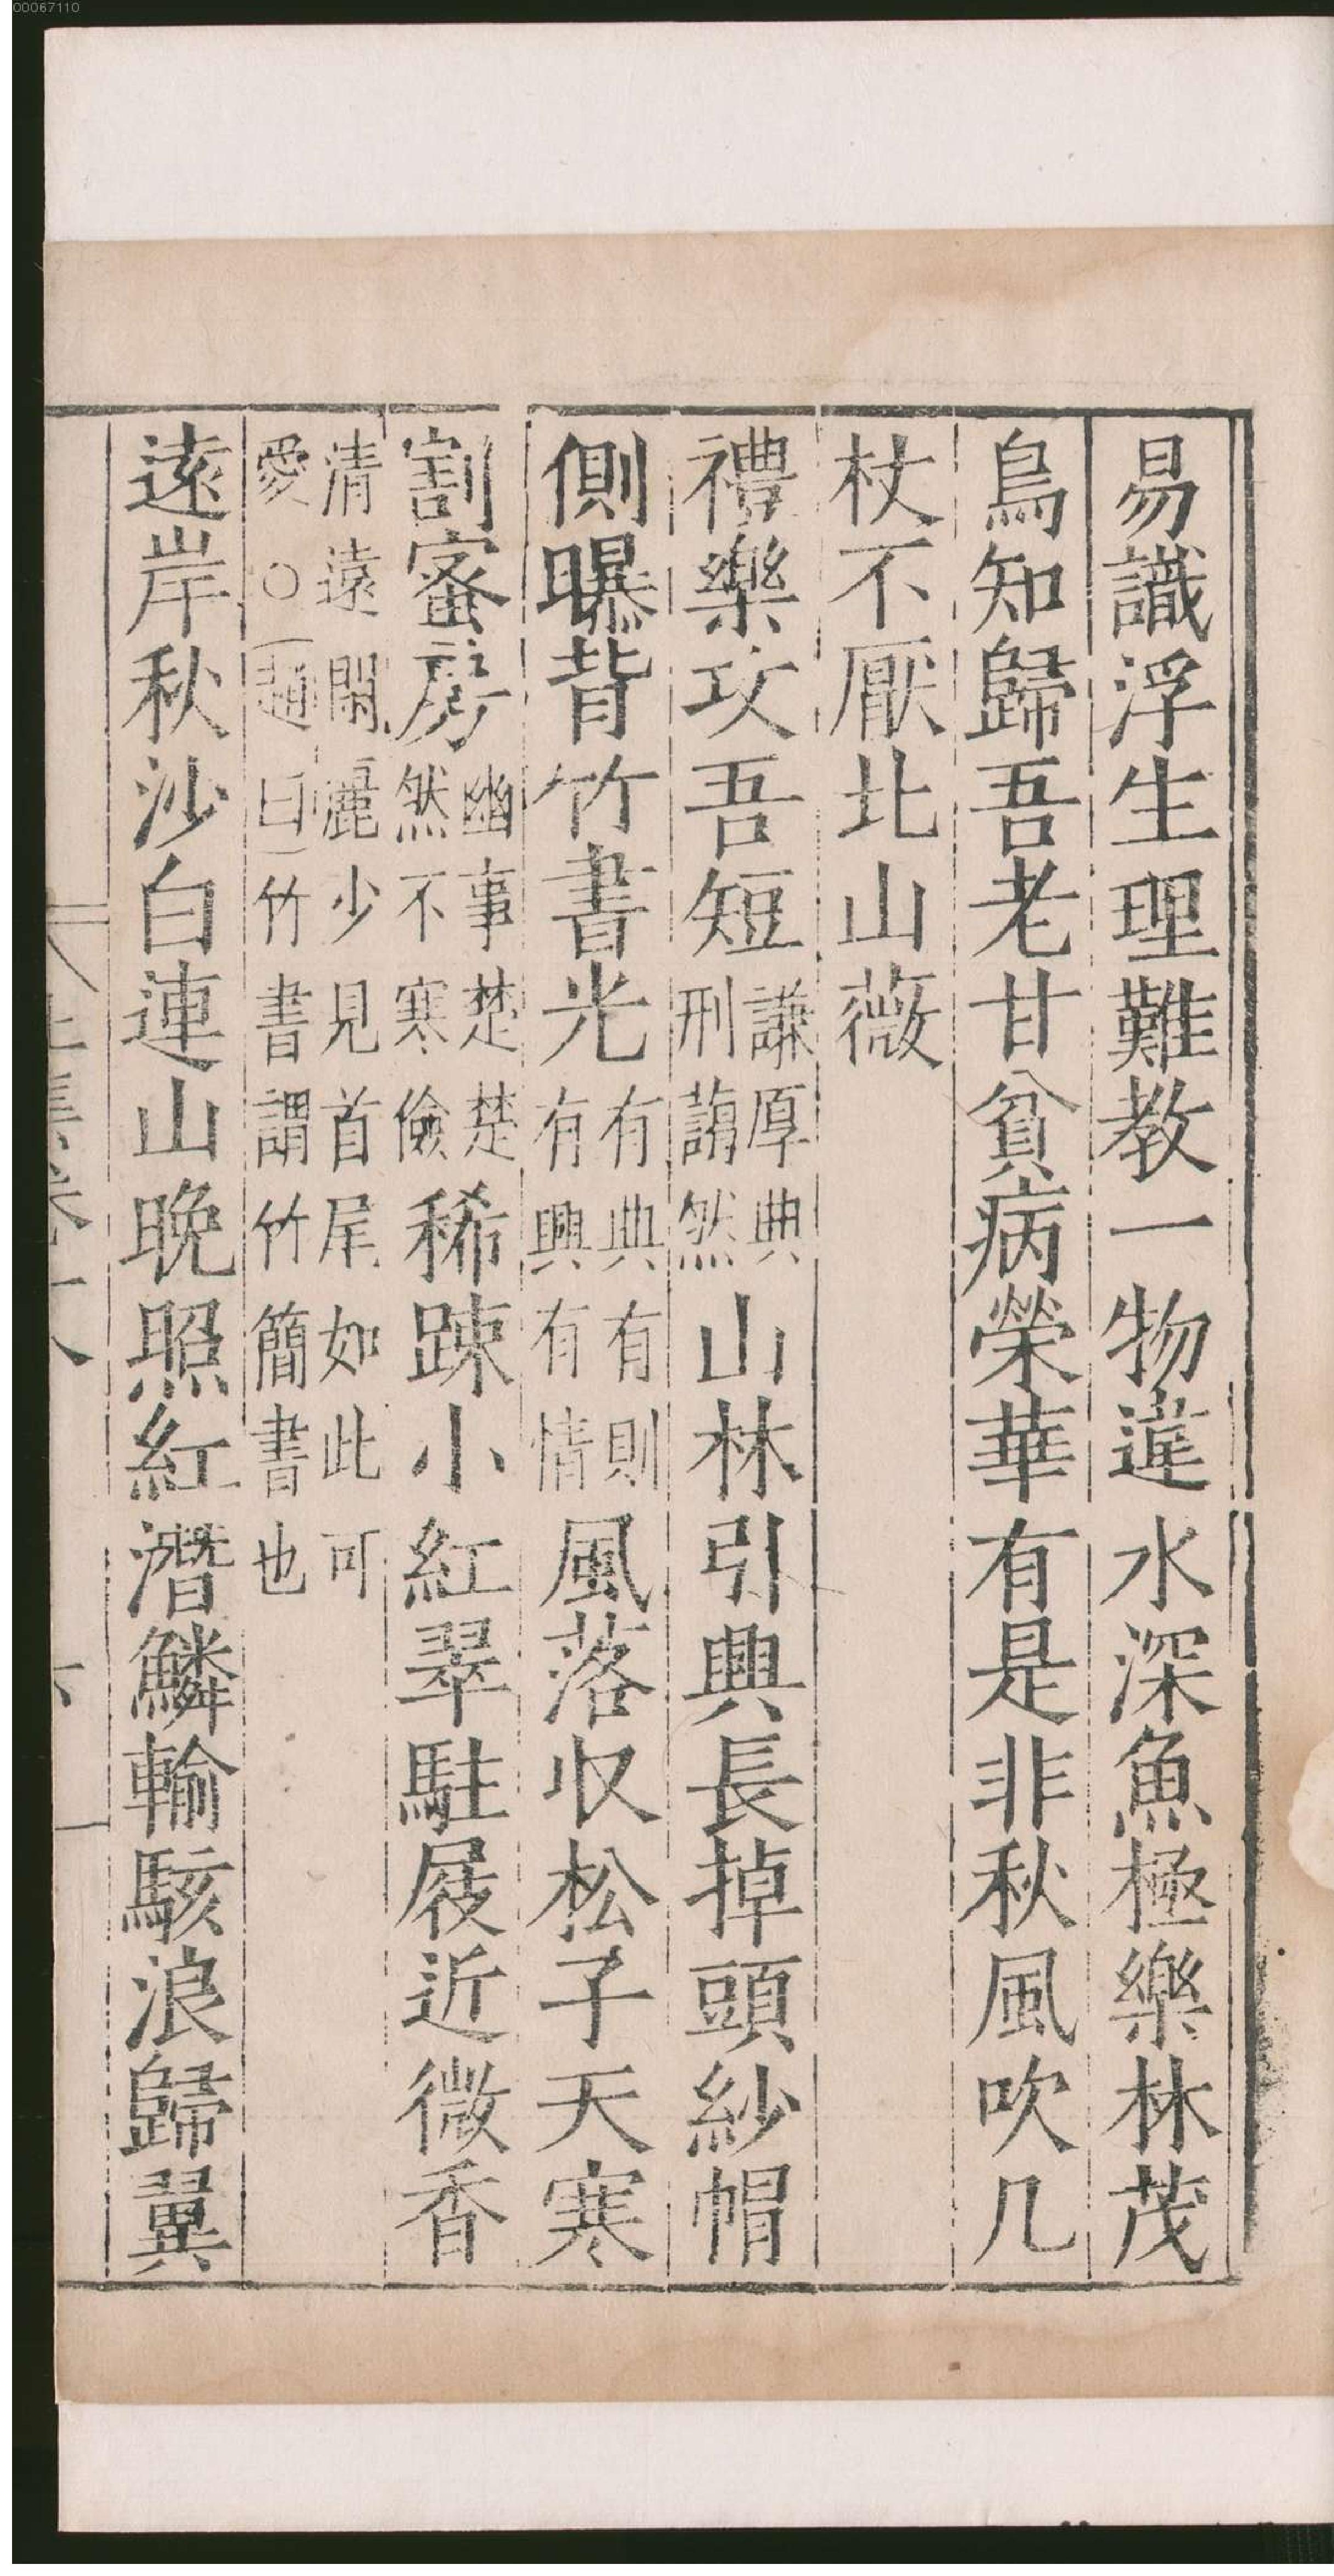 00067110
易識浮生理難教一物違水深魚極樂林茂
鳥知歸吾老甘貧病榮華有是非秋風吹几
杖不厭北山薇
禮樂攻吾短謙厚典刑藹然山林引興長掉頭紗帽
側曝背竹書光有典有則有興有情風落収松子天寒
割蜜房幽事楚楚然不寒儉稀踈小紅翠駐屐近微香
清遠閑麗少見首尾如此可
愛○趙曰竹書謂竹簡書也
遠岸秋沙白連山晚照紅潛鱗輸駭浪歸翼